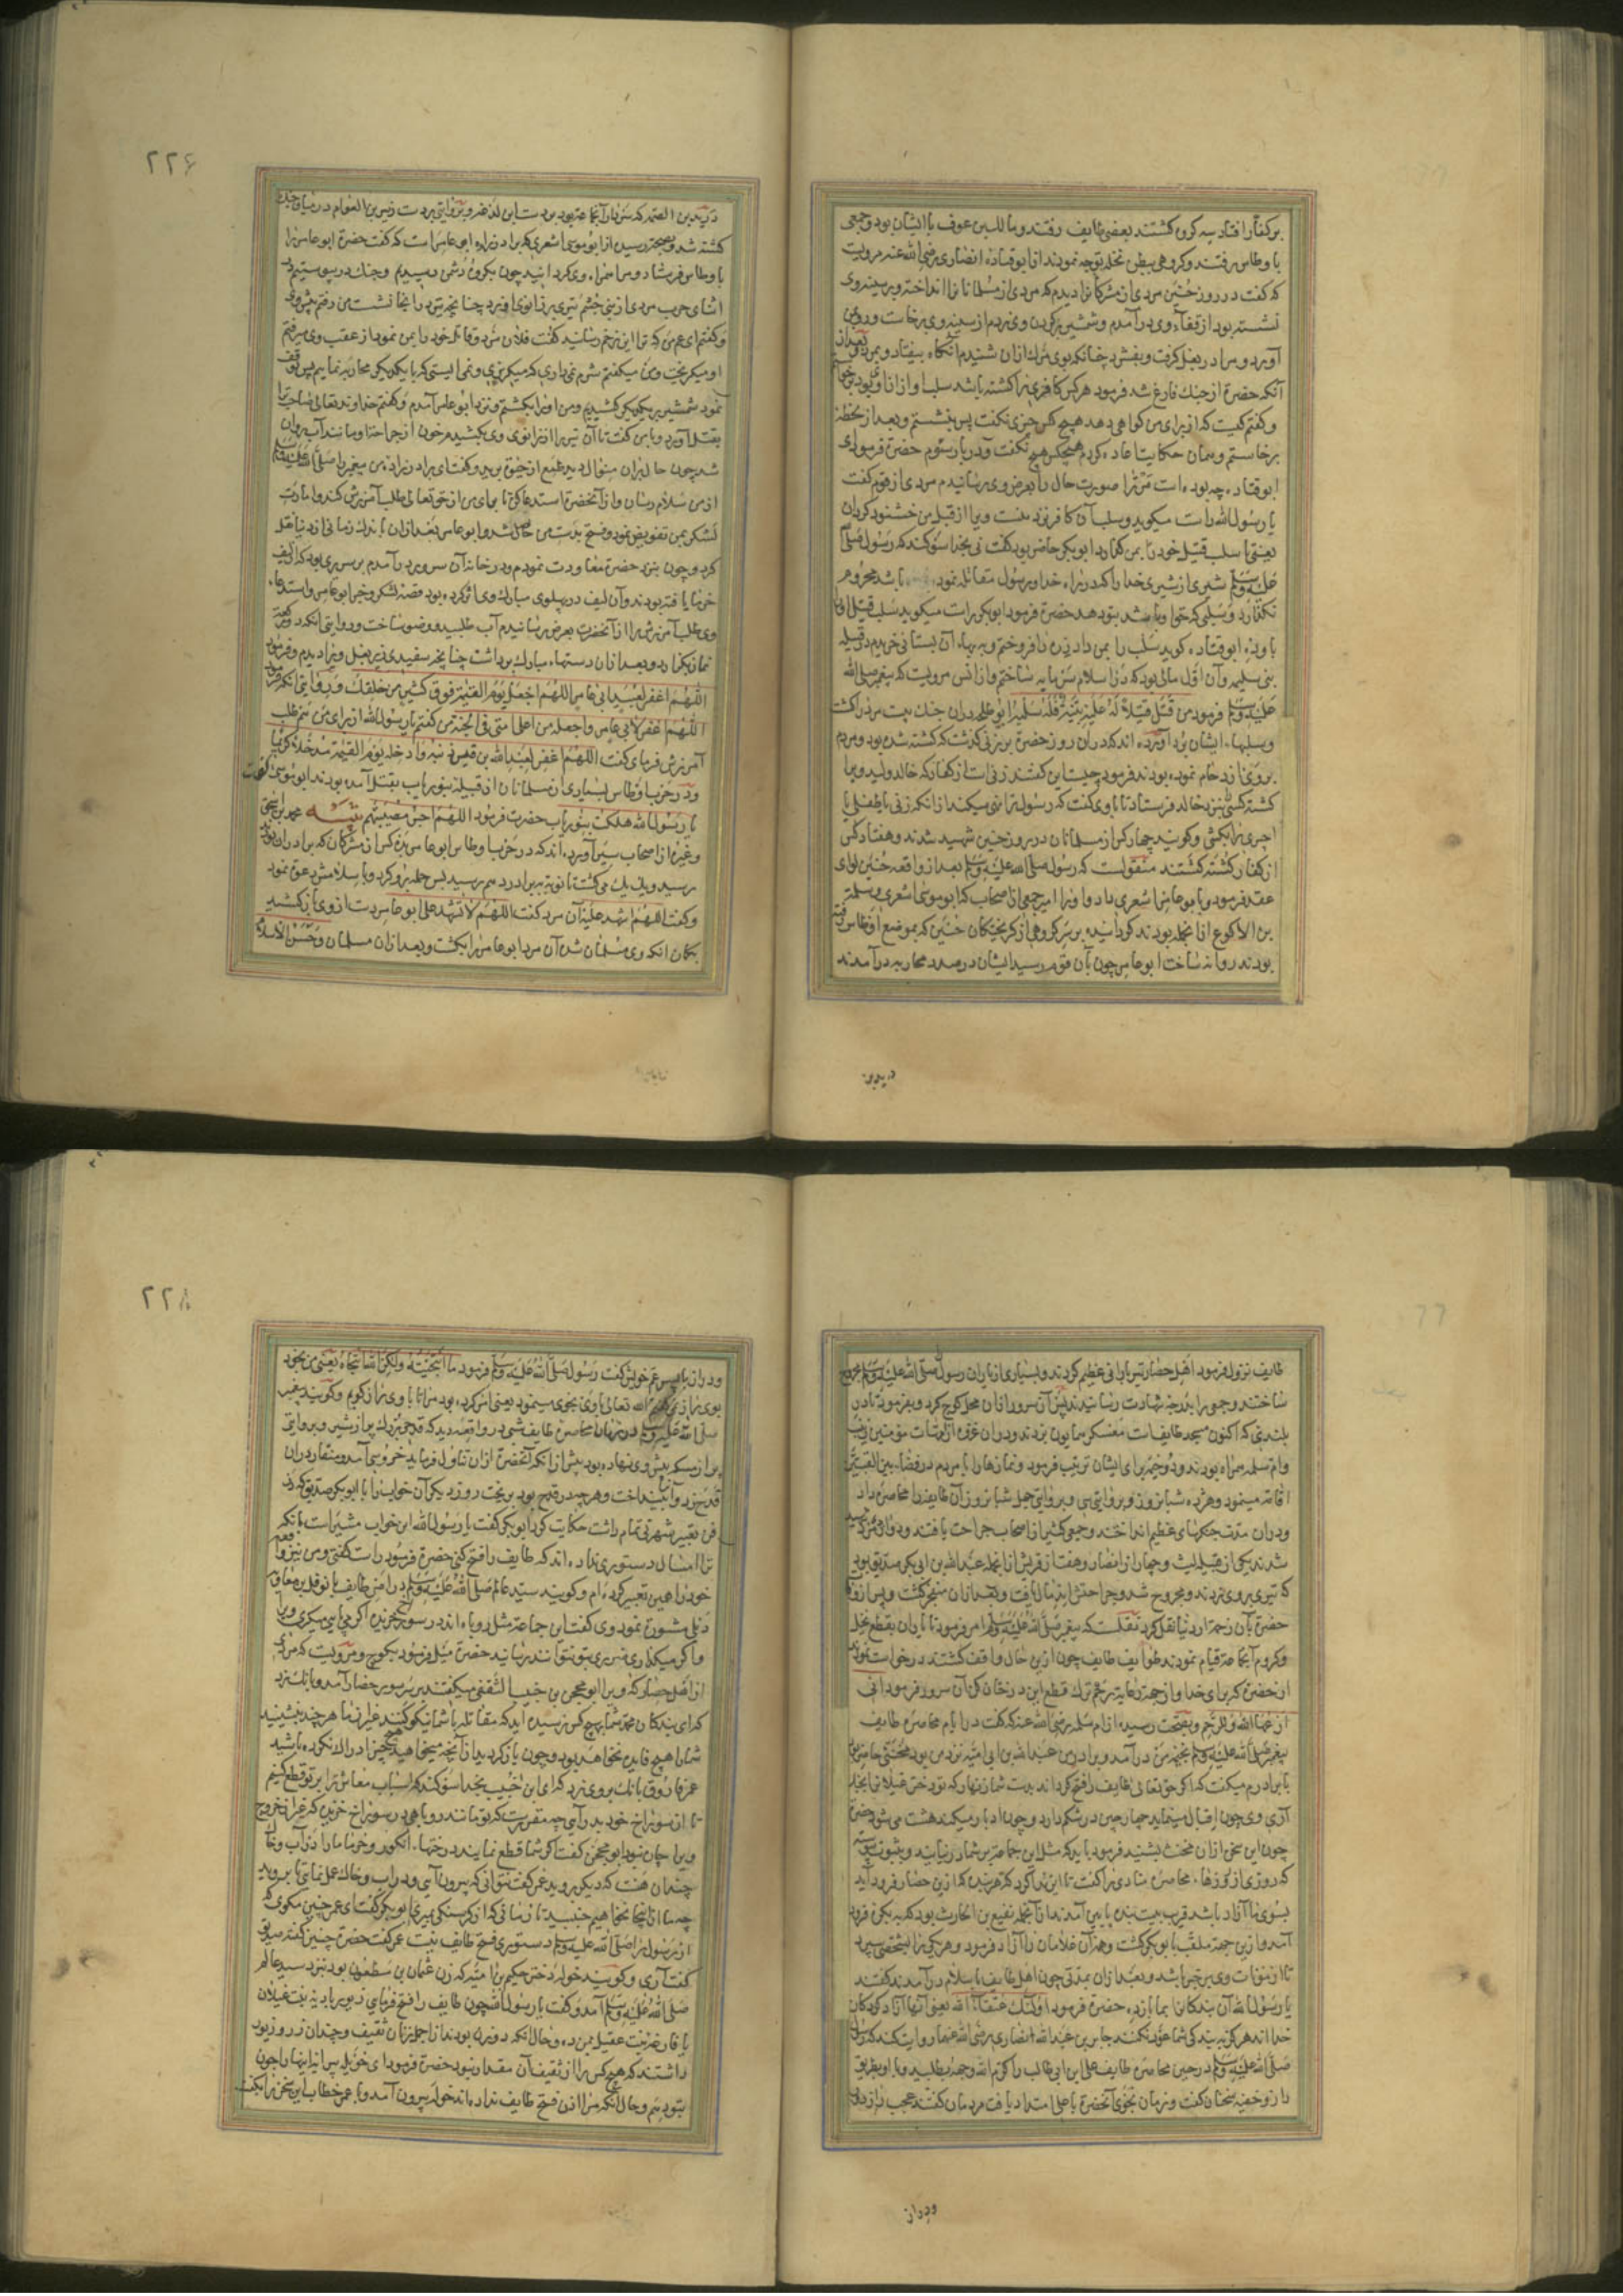 بر کفار افتاد سه گروه گشتند بعضی بطایف رفتند و مالک بن عوف با ایشان بود و جمعی
با وطاس رفتند و گروهی ببطن نخله توجه نمودند از ابوقتاده انصاری رضی الله عنه مرویست
که گفت در روز حنین مردی از مشرکانرا دیدم که مردی از مسلمانانرا انداخته و بر سینه وی
نشسته بود از قفاء وی در آمدم و شمشیر بر گردن وی زدم از سینه وی برخاست و روی بمن
آورد و مرا در بغل گرفت و بفشرد چنانکه بوی مرگ ازان شنیدم آنگاه بیفتاد و بمرد بعد از
آنکه حضرة از جنک فارغ شد فرمود هر کس کافری را کشته باشد سلب او از ان او بود
و گفتم کیست که از برای من گواهی دهد هیچ کس چیزی نگفت پس بنشستم و بعد از لحظه
برخاستم و همان حکایت اعاده کردم هیچکس هیچ نگفت و در بار سوم حضرة فرمود ای
ابوقتاده چه بوده است ترا صورت حال را بعرض وی رسانیدم مردی از قوم گفت
یا رسول الله راست میگوید و سلب آن کافر نزد منست ویرا از قبل من خشنود گردان
یعنی تا سلب قتیل خود را بمن گذارد ابوبکر حاضر بود گفت نی بخدا سوگند که رسول صلی الله
علیه وسلم شیری از شیرهای خدا را که در راه خدا و رسول مقاتله نموده باشد محروم
نگذارد و سلبی که حق او باشد بتو دهد حضرة فرمود ابوبکر راست میگوید سلب قتیل او را
باو ده ابوقتاده گوید سلب را بمن داد زره را فروختم و ببهاء آن بستانی خریدم در قبیله
بنی سلیمه و آن اول مالی بود که در اسلام سرمایه ساختم و از انس مرویست که پیغمبر صلی الله
علیه وسلم فرمود من قتل قتیلاً له علیه بینة فله سلبه ابو طلحه دران جنک بیست مرد را کشت
و سلبهاء ایشان بود آورده اند که دران روز حضرة بر زنی گذشت که کشته شده بود و مردم
بر وی ازدحام نموده بودند فرمود چیست این گفتند زنی است از کفار که خالد ولید ویرا
کشته کسی بنزد خالد فرستاد تا باوی گفت که رسول ترا نهی میکند از انکه زنی یا طفلی یا
اجیری را بکشی و گویند چهار کس از مسلمانان در روز حنین شهید شدند و هفتاد کس
از کفار کشته گشتند منقولست که رسول صلی الله علیه وسلم بعد از واقعه حنین لوای
عقد فرمود و بابو عامر اشعری داد و او را امیر جمعی از اصحاب که ابو موسی اشعری و سلمة
بن الاکوع از انجمله بودند گردانید و بر سر گروهی از گریختگان حنین که بموضع اوطاس رفته
بودند روانه ساخت ابو عامر چون بآن قوم رسید ایشان در صدد محاربه در آمدند
درید بن
۲۲۶
درید بن الصمه که سردار آنجماعه بود بدست ابن لدغه و بروایتی بدست زبیر بن العوام در میان جنک
کشته شد و بصحة رسیده از ابو موسی اشعری که برادر زاده ابو عامر است که گفت حضرة ابو عامر را
با وطاس فرستاد و مرا همراه وی گردانید چون بگروه دشمن رسیدیم و جنک در پیوستیم در
اثنای حرب مردی از بنی جشم تیری بر زانوی او زد چنانچه تیر در انجا نشست من رفتم پیش وی
و گفتم ای عم من که ترا این زخم رسانید گفت فلان مرد و قاتل خود را بمن نمود از عقب وی میرفتم
او میگریخت و من میگفتم شرم نمی داری که میگریزی و نمی ایستی که با یکدیگر محاربه نماییم پس توقف
نمود شمشیر بر یکدیگر کشیدیم و من او را بکشتم و نزد ابو عامر آمدم و گفتم خداوند تعالی صاحب ترا
بقتل آورد و با من گفت تا آن تیر را از زانوی وی بکشیدم خون از جراحة او مانند آب روان
شد چون حال بران منوال دید طمع از حیوة ببرید و گفت ای برادر زاده من پیغمبر را صلی الله علیه وسلم
از من سلام رسان و از آنحضرة استدعا کن تا برای من از حق تعالی طلب آمرزش کند و امارت
لشکر بمن تفویض نمود و فتح بدست من حاصل شد و ابو عامر بعد ازان باندک زمانی از دنیا نقل
کرد و چون بنزد حضرة معاودت نمودم و در خانه آن سرور در آمدم بر سریری بود که از لیف
خرما بافته بودند و آن لیف در پهلوی مبارک وی اثر کرده بود قصه لشکر و خبر ابو عامر و استدعاء
وی طلب آمرزش را از آنحضرت بعرض رسانیدم آب طلبید و وضو ساخت و در روایتی آنکه دو رکعة
نماز بگزارد و بعد ازان دستهاء مبارک برداشت چنانچه سفیدی زیر بغل ویرا دیدم و فرمود
اللهم اغفر لعبید ابی عامر اللهم اجعله یوم القیمة فوق کثیر من خلقک و بروایتی آنکه فرمود
اللهم اغفر لابی عامر واجعله من اعلی امتی فی الجنة من گفتم یا رسول الله از برای من نیز طلب
آمرزش فرمای گفت اللهم اغفر لعبد الله بن قیس ذنبه وادخله یوم القیمة مدخلاً کریماً
و در حرب اوطاس بسیاری از مسلمانان از قبیله بنو رباب بقتل آمده بودند ابو موسی گفت
یا رسول الله هلکت بنو رباب حضرت فرمود اللهم اجبر مصیبتهم تنبیه محمد بن اسحق
و غیره از اصحاب سیر آورده اند که در حرب اوطاس ابو عامر بده کس از مشرکان که برادران بودند
رسید و یک یک می کشت تا نوبه ببرادر دهم رسید پس حمله برو کرد و باسلامش دعوة نمود
و گفت اللهم اشهد علیه آن مرد گفت اللهم لا تشهد علی ابو عامر دست از وی باز کشید
بگمان آنکه وی مسلمان شد آن مرد ابو عامر را بکشت و بعد ازان مسلمان و حسن الاسلام
طایف نزول فرمود اهل حصار تیر بارانی عظیم کردند و بسیاری از یاران رسول صلی الله علیه وسلم مجروح
ساختند و جمعی را بدرجه شهادت رسانیدند پس آن سرور ازان محل کوچ کرد و بفرمود تا در
بلندی که اکنون مسجد طایف است معسکر همایون بزدند و دران غزوه از امهات مؤمنین زینب
و ام سلمه همراه بودند و دو خیمه برای ایشان ترتیب فرمود و نمازها را با مردم در فضاء بین القبتین
اقامه مینمود و هژده شبانروز و بروایتی سی و بروایتی چهل شبانروز آن طایف را محاصره داد
و دران مدت جنکهای عظیم انداختند و جمعی کثیر از اصحاب جراحت یافتند و دوازده مرد شهید
شدند یکی از قبیله لیث و چهار از انصار و هفت از قریش از انجمله عبد الله بن ابی بکر صدیق بود
که تیری بر وی زدند و مجروح شد و جراحتش اندمال یافت و بعد ازان منفجر گشت و پس از وفاة
حضرة بآن زحمة از دنیا نقل کرد نقلست که پیغمبر صلی الله علیه وسلم امر فرمود تا یاران بقطع نخل
و کروم آنجماعه قیام نمودند طوایف طایف چون ازین حال واقف گشتند درخواست نمودند
از حضرة که برای خدا و از جهة رعایة رحم ترک قطع این درختان کن آن سرور فرمود انی
ادعها لله وللرحم و بصحت رسیده از ام سلمه رضی الله عنها که گفت در ایام محاصره طایف
پیغمبر صلی الله علیه وسلم بخیمه من در آمد و برادر من عبد الله بن ابی امیه نزد من بود مخنثی حاضر بود
با برادرم میگفت که اگر حق تعالی طایف را فتح گرداند بدست شما زنهار که تو دختر غیلان را بگیر
آری وی چون اقبال مینماید چهار چین در شکم دارد و چون ادبار میکند هشت می شود حضرة
چون این سخن ازان مخنث بشنید فرمود باید که مثل این جماعه بر شما در نیایند و بثبوت پیوسته
که روزی از روزهاء محاصره منادی را گفت تا این ندا کرد که هر بنده که ازین حصار فرود آید
بسوی ما آزاد باشد قریب بیست بنده پایین آمدند از آنجمله نفیع بن الحارث بود که ببکره فرود
آمد و ازین جهة ملقب بابوبکره گشت و همه آن غلامان را آزاد فرمود و هر یکی را بشخصی سپرد
تا از مؤنات وی بر خبر باشد و بعد ازان بمدتی چون اهل طایف باسلام در آمدند گفتند
یا رسول الله آن بندگان ما بما باز ده حضرة فرمود اولئک عتقاء الله یعنی آنها آزاد کردگان
خدا اند هرگز ببندگی شما عود نکنند جابر بن عبد الله انصاری رضی الله عنهما روایت کند که رسول
صلی الله علیه وسلم در حین محاصره طایف علی بن ابی طالب را کرم الله وجهه بطلبید و با او بطریق
راز و خفیه سخنان گفت و زمان نجوی آنحضرة با علی امتداد یافت مردمان گفتند عجب راز دور
و دراز
۲۲۸
و دراز با پسر عم خویش گفت رسول صلی الله علیه وسلم فرمود ما انتجیته ولکن الله انتجاه یعنی من بخود
بوی راز نگفتم الله تعالی باوی نجوی مینمود یعنی امر کرده بود مرا تا باوی راز گویم و گویند پیغمبر
صلی الله علیه وسلم در زمان محاصره طایف شبی در واقعه دید که قدحی بزرک پر از شیر و بروایتی
پر از مسکه پیش وی نهاده بود پیش از انکه آنحضرة ازان تناول فرماید خروسی آمد و منقار دران
قدح زد و آنرا بینداخت و هر چه در قدح بود بریخت روز دیگر آن خواب را با ابوبکر صدیق که در
فن تعبیر شهرتی تمام داشت حکایت کرد ابوبکر گفت یا رسول الله این خواب مشیر است بآنکه
ترا امسال دستوری نداده اند که طایف را فتح کنی حضرة فرمود راست گفتی و من نیز واقعه
خود را همین تعبیر کرده ام و گویند سید عالم صلی الله علیه وسلم در امر طایف با نوفل بن معاویه
دئلی مشورة نمود وی گفت این جماعة مثل روباه اند در سوراخ خزیده اگر می پایی میگیری ویرا
و اگر میگذاری ضرری بتو نتواند رسانید حضرة میل فرمود بکوچ و مرویست که مردی
از اهل حصار که ویرا ابو محجن بن حبیب الثقفی میگفتند بر سر سور حصار آمد و بانک زد
که ای بندگان محمد شما بهیچ کس نرسیده اید که مقاتله با شما نیکو کنند غیر از ما هر چند بنشینید
شما را هیچ فایده نخواهد بود و چون باز گردید از آنچه میخواهید هیچ چیز ادراک نکرده باشید
عمر فاروق بانک بر وی زد که ای ابن حبیب بخدا سوگند که اسباب معاش ترا بر تو قطع کنیم
تا از سوراخ خود بدر آیی چه مقررست که تو مانند روباهی در سوراخ خزیده که غیر از خروج
ویرا چاره نبود ابو محجن گفت اگر شما قطع نمایید درختهاء انگور و خرما ما را در آب و خاک
چندان هست که دیگر بروید عمر گفت نتوانی که بیرون آیی و در آب و خاک عمل نمایی تا بروید
چه ما از اینجا نخواهیم جنبید تا زمانی که از گرسنگی بمیری ابوبکر گفت ای عمر چنین مگوی که
از رسول را صلی الله علیه وسلم دستوری فتح طایف نیست عمر گفت حضرة چنین گفته صدیق
گفت آری و گویند خوله دختر حکیم بن امیه که زن عثمان بن مظعون بود نزد سید عالم
صلی الله علیه وسلم آمد و گفت یا رسول الله چون طایف را فتح فرمایی زیور بادیه بنت غیلان
یا فارعه بنت عقیل بمن ده و حال آنکه دو زن بودند از اجمل زنان ثقیف و چندان زر و زیور
داشتند که هیچ کس را از ثقیف آن مقدار نبود حضرة فرمود ای خویله پس انرا اینها را چون
بتو دهم و حال آنکه مرا اذن فتح طایف نداده اند خوله بیرون آمد و با عمر خطاب این سخن را بگفت